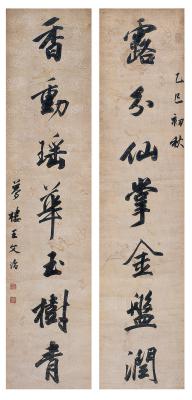 乙巳初秋
露分仙掌金盤潤
香動瑤華玉樹青
夢樓王文治